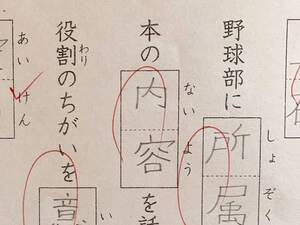 野球部に所属
しょぞく
本の内容を話
ないよう
役割のちがいを音
わり
い
あいけん